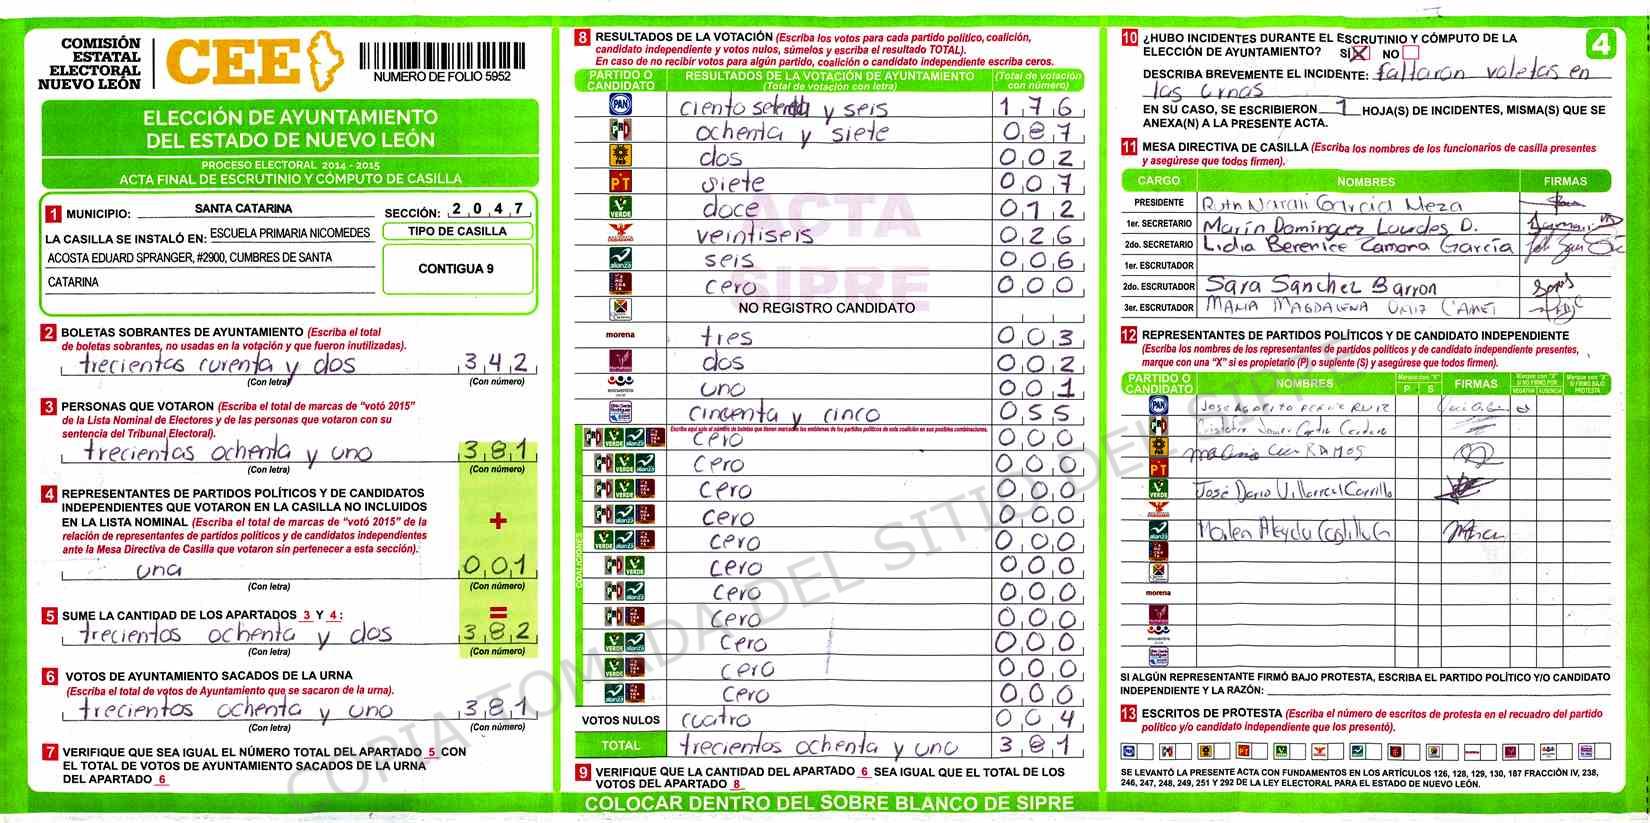 COMISIÓN
ESTATAL
ELECTORAL
NUEVO LEÓN
CEE
NUMERO DE FOLIO 5952
ELECCIÓN DE AYUNTAMIENTO
DEL ESTADO DE NUEVO LEÓN
PROCESO ELECTORAL 2014 - 2015
ACTA FINAL DE ESCRUTINIO Y CÓMPUTO DE CASILLA
1 MUNICIPIO: SANTA CATARINA SECCIÓN: 2 0 4 7
LA CASILLA SE INSTALÓ EN: ESCUELA PRIMARIA NICOMEDES
ACOSTA EDUARD SPRANGER, #2900, CUMBRES DE SANTA
CATARINA
TIPO DE CASILLA
CONTIGUA 9
2 BOLETAS SOBRANTES DE AYUNTAMIENTO (Escriba el total
de boletas sobrantes, no usadas en la votación y que fueron inutilizadas).
trecientos curenta y dos 3 4 2
(Con letra) (Con número)
3 PERSONAS QUE VOTARON (Escriba el total de marcas de "votó 2015"
de la Lista Nominal de Electores y de las personas que votaron con su
sentencia del Tribunal Electoral).
trecientos ochenta y uno 3 8 1
(Con letra) (Con número)
4 REPRESENTANTES DE PARTIDOS POLÍTICOS Y DE CANDIDATOS
INDEPENDIENTES QUE VOTARON EN LA CASILLA NO INCLUIDOS
EN LA LISTA NOMINAL (Escriba el total de marcas de "votó 2015" de la
relación de representantes de partidos políticos y de candidatos independientes
ante la Mesa Directiva de Casilla que votaron sin pertenecer a esta sección).
+
una 0 0 1
(Con letra) (Con número)
=
5 SUME LA CANTIDAD DE LOS APARTADOS 3 Y 4:
trecientos ochenta y dos 3 8 2
(Con letra) (Con número)
6 VOTOS DE AYUNTAMIENTO SACADOS DE LA URNA
(Escriba el total de votos de Ayuntamiento que se sacaron de la urna).
trecientos ochenta y uno 3 8 1
(Con letra) (Con número)
7 VERIFIQUE QUE SEA IGUAL EL NÚMERO TOTAL DEL APARTADO 5 CON
EL TOTAL DE VOTOS DE AYUNTAMIENTO SACADOS DE LA URNA
DEL APARTADO 6
8 RESULTADOS DE LA VOTACIÓN (Escriba los votos para cada partido político, coalición,
candidato independiente y votos nulos, súmelos y escriba el resultado TOTAL).
En caso de no recibir votos para algún partido, coalición o candidato independiente escriba ceros.
PARTIDO O CANDIDATO RESULTADOS DE LA VOTACIÓN DE AYUNTAMIENTO (Total de votación con letra) (Total de votación con número)
PAN ciento setenta y seis 1 7 6
PRD ochenta y siete 0 8 7
PRD dos 0 0 2
PT siete 0 0 7
VERDE doce 0 1 2
veintiseis 0 2 6
alianza seis 0 0 6
cero 0 0 0
NO REGISTRO CANDIDATO
morena tres 0 0 3
dos 0 0 2
uno 0 0 1
cincuenta y cinco 0 5 5
COALICIONES
Escriba aquí solo el número de boletas que tienen marcados los emblemas de los partidos políticos de esta coalición en sus posibles combinaciones.
cero 0 0 0
cero 0 0 0
cero 0 0 0
cero 0 0 0
cero 0 0 0
cero 0 0 0
cero 0 0 0
cero 0 0 0
cero 0 0 0
cero 0 0 0
cero 0 0 0
VOTOS NULOS cuatro 0 0 4
TOTAL trecientos ochenta y uno 3 8 1
9 VERIFIQUE QUE LA CANTIDAD DEL APARTADO 6 SEA IGUAL QUE EL TOTAL DE LOS
VOTOS DEL APARTADO 8
ACTA
SIPRE
COLOCAR DENTRO DEL SOBRE BLANCO DE SIPRE
4
10 ¿HUBO INCIDENTES DURANTE EL ESCRUTINIO Y CÓMPUTO DE LA
ELECCIÓN DE AYUNTAMIENTO? SÍ X NO
DESCRIBA BREVEMENTE EL INCIDENTE: faltaron voletas en
las urnas
EN SU CASO, SE ESCRIBIERON 1 HOJA(S) DE INCIDENTES, MISMA(S) QUE SE
ANEXA(N) A LA PRESENTE ACTA.
11 MESA DIRECTIVA DE CASILLA (Escriba los nombres de los funcionarios de casilla presentes
y asegúrese que todos firmen).
CARGO NOMBRES FIRMAS
PRESIDENTE Ruth Narali Garcia Meza
1er. SECRETARIO Marín Domínguez Lourdes D.
2do. SECRETARIO Lidia Berenice Zamora García
1er. ESCRUTADOR
2do. ESCRUTADOR Sara Sanchez Barron
3er. ESCRUTADOR MARIA MAGDALENA
12 REPRESENTANTES DE PARTIDOS POLÍTICOS Y DE CANDIDATO INDEPENDIENTE
(Escriba los nombres de los representantes de partidos políticos y de candidato independiente presentes,
marque con una "X" si es propietario (P) o suplente (S) y asegúrese que todos firmen).
PARTIDO O CANDIDATO NOMBRES Marque con "X" P S FIRMAS Marque con "X" SI NO FIRMÓ POR NEGATIVA AUSENCIA Marque con "X" SI FIRMÓ BAJO PROTESTA
PAN JOSE RUIZ
RAMOS
PT
VERDE José Dario Villarreal Carrillo
morena
SI ALGÚN REPRESENTANTE FIRMÓ BAJO PROTESTA, ESCRIBA EL PARTIDO POLÍTICO Y/O CANDIDATO
INDEPENDIENTE Y LA RAZÓN:
13 ESCRITOS DE PROTESTA (Escriba el número de escritos de protesta en el recuadro del partido
político y/o candidato independiente que los presentó).
SE LEVANTÓ LA PRESENTE ACTA CON FUNDAMENTOS EN LOS ARTÍCULOS 126, 128, 129, 130, 187 FRACCIÓN IV, 238,
246, 247, 248, 249, 251 Y 292 DE LA LEY ELECTORAL PARA EL ESTADO DE NUEVO LEÓN.
COPIA TOMADA DEL SITIO DEL SIPRE